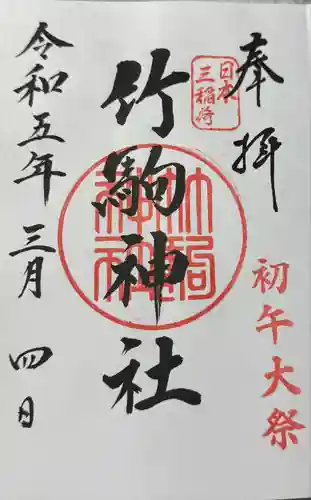 奉拝
初午大祭
日本
三稲荷
竹駒神社
竹駒
神社
令和五年 三月 四日